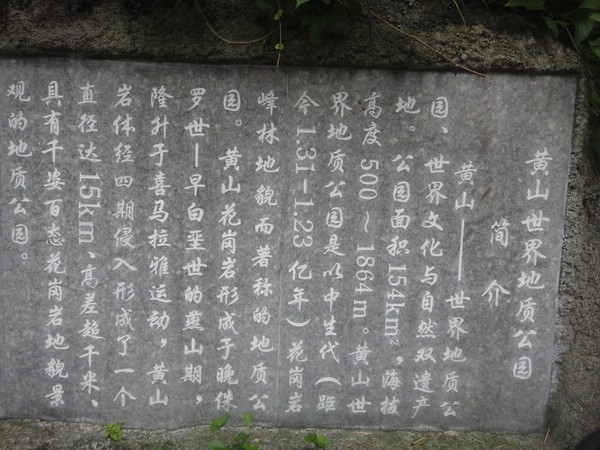 黄山世界地质公园
简介
黄山——世界地质公
园、世界文化与自然双遗产
地。公园面积154km²,海拔
高度500～1864m。黄山世
界地质公园是以中生代(距
今1.31-1.23亿年)花岗岩
峰林地貌而著称的地质公
园。黄山花岗岩形成于晚侏
罗世—早白垩世的燕山期,
隆升于喜马拉雅运动,黄山
岩体经四期侵入形成了一个
直径达15km、高差超千米、
具有千姿百态花岗岩地貌景
观的地质公园。